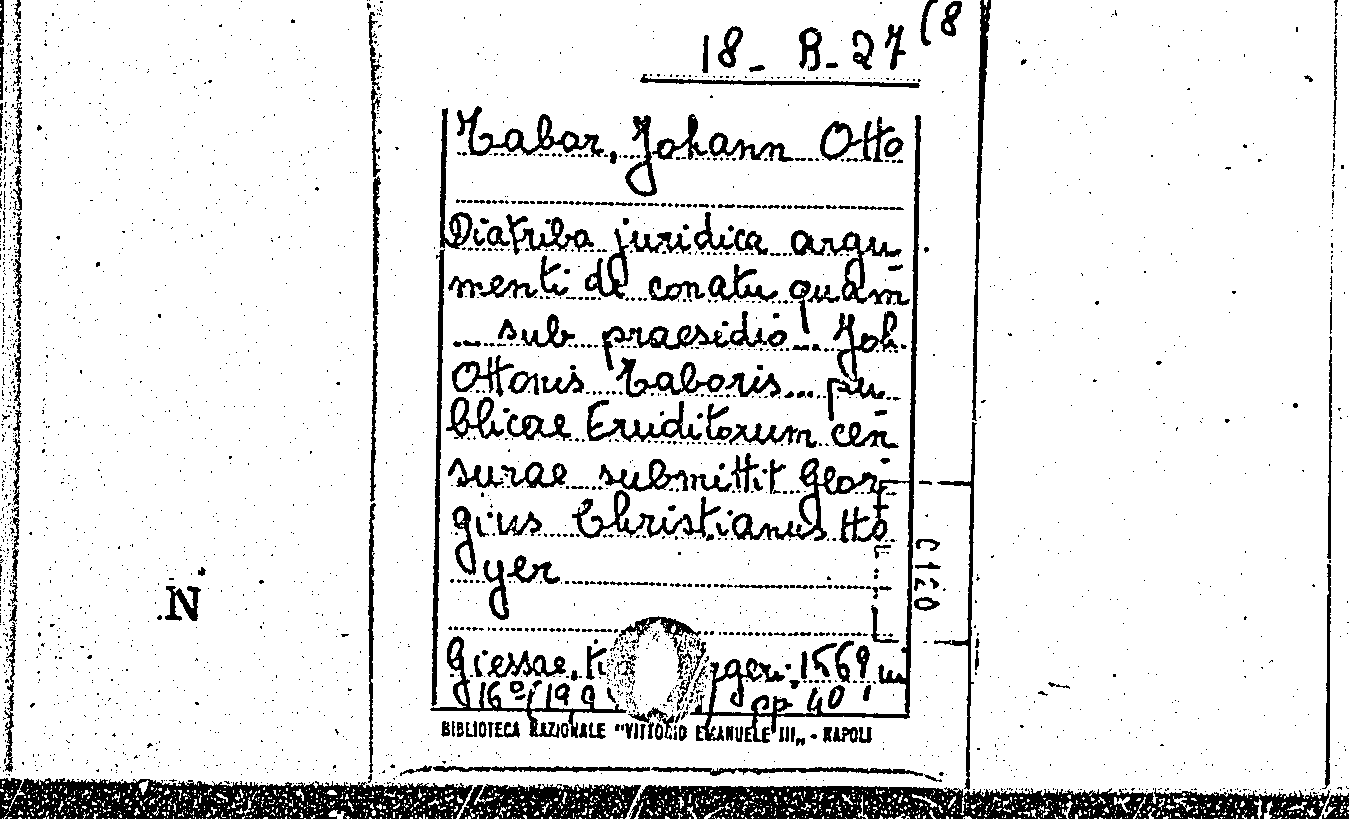 18- B-27 (8
Tabor, Johann Otto
Diatriba juridica argu
menti de conatu quam
... sub praesidio... Joh.
Ottonis Taboris... pu
blicae Eruditorum cen
surae submittit Geor
gius Christianus Ho
yer
C120
N
Giessae, 1569 in
16° (19 pp 40
BIBLIOTECA NAZIONALE "VITTORIO EMANUELE III„ - NAPOLI